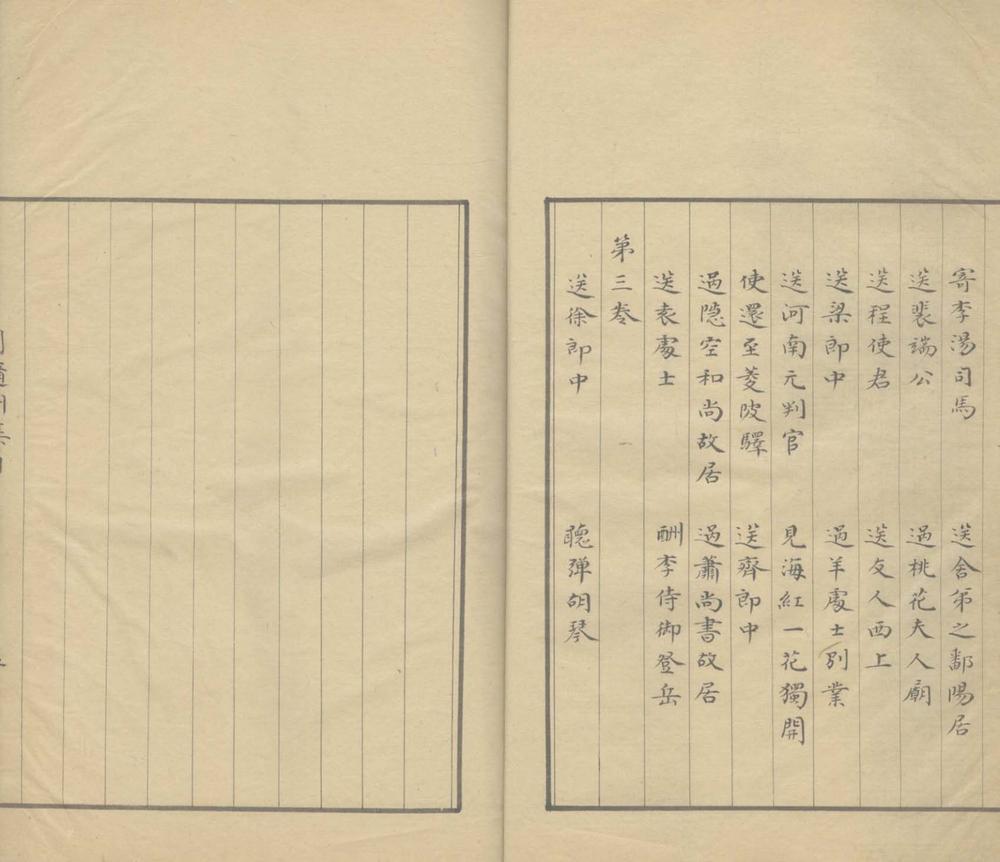 寄李湯司馬　送舍弟之鄱陽居
送裴端公　過桃花夫人廟
送程使君　送友人西上
送梁郎中　過羊處士別業
送河南元判官　見海紅一花獨開
使還至菱陂驛　送齊郎中
過隐空和尚故居　過蕭尚書故居
送袁處士　酬李侍御登岳
第三卷
送徐郎中　聽弹胡琴